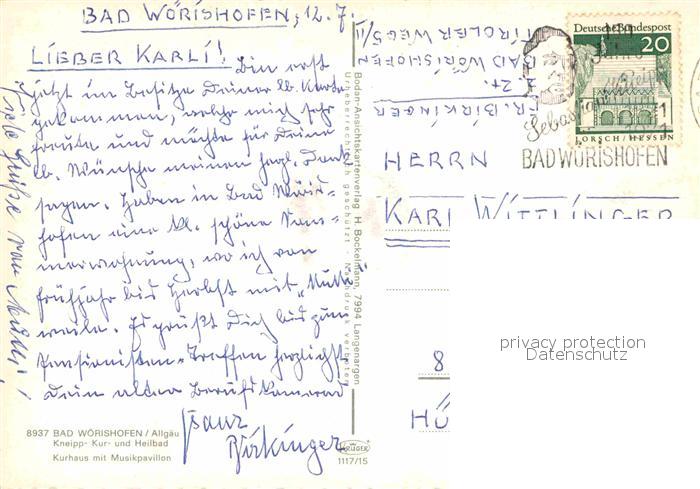 BAD WÖRISHOFEN, 12.7.
LIEBER KARLI! Bin erst
jetzt im Besitze Deiner lb. Karte
gekommen, welche mich sehr
freute und möchte für Deine
lb. Wünsche meinen herzl. Dank
sagen. Haben in Bad Wöris-
hofen eine kl. schöne Som-
merwohnung, wo ich von
Frühjahr bis Herbst mit „Mutti"
weile. Es grüßt Dich bis zum
Pensionisten-Treffen herzlichst
Dein alter Berufskamerad
Franz
Birkinger
Viele Grüße von
8937 BAD WÖRISHOFEN / Allgäu
Kneipp- Kur- und Heilbad
Kurhaus mit Musikpavillon
Bodan-Ansichtskartenverlag H. Bockelmann, 7994 Langenargen
Urheberrechtlich geschützt · Nachdruck verboten
KRÜGER
1117/15
FR. BIRKINGER
z. Zt.
BAD WÖRISHOFEN
TIROLER WEG 5/II
Deutsche Bundespost
20
LORSCH/HESSEN
Jahre
Sebastian
BAD WÖRISHOFEN
HERRN
KARL WITTLINGER
8
HÜ
privacy protection
Datenschutz